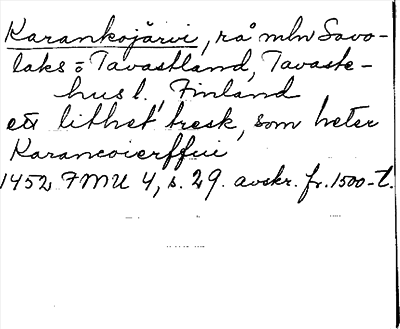 Karankojärvi, rå mln Savo-
laks o Tavastland, Tavaste-
hus l. Finland
ett lithet tresk, som heter
Karancoierffui
1452 FMU 4, s. 29. avskr. fr. 1500-t.